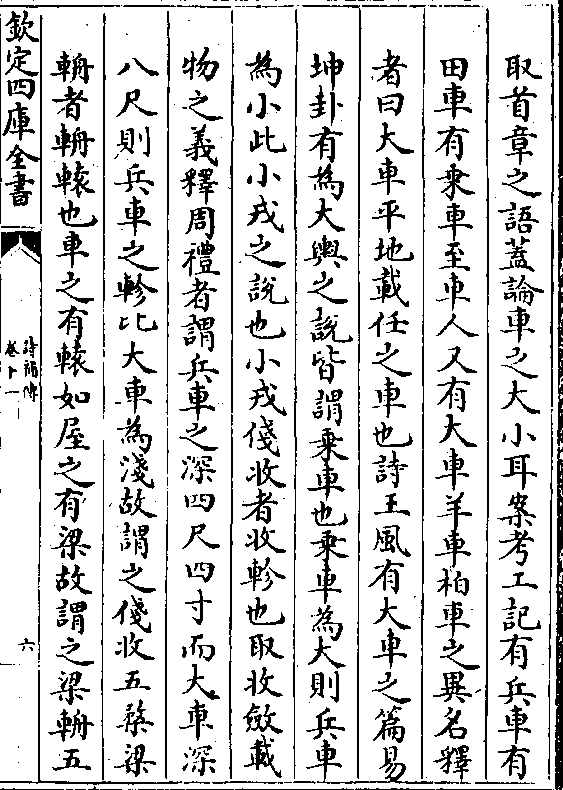 取首章之語蓋論車之大小耳案考工記有兵車有
田車有乗車至車人又有大車羊車柏車之異名釋
者曰大車平地載任之車也詩王風有大車之篇易
坤卦有為大輿之說皆謂乗車也乗車為大則兵車
為小此小戎之說也小戎俴收者收軫也取收斂載
物之義釋周禮者謂兵車之深四尺四寸而大車深
八尺則兵車之軫比大車為淺故謂之俴收五楘梁
輈者輈轅也車之有轅如屋之有梁故謂之梁輈五
欽定四庫全書
詩補傳
卷十一
六